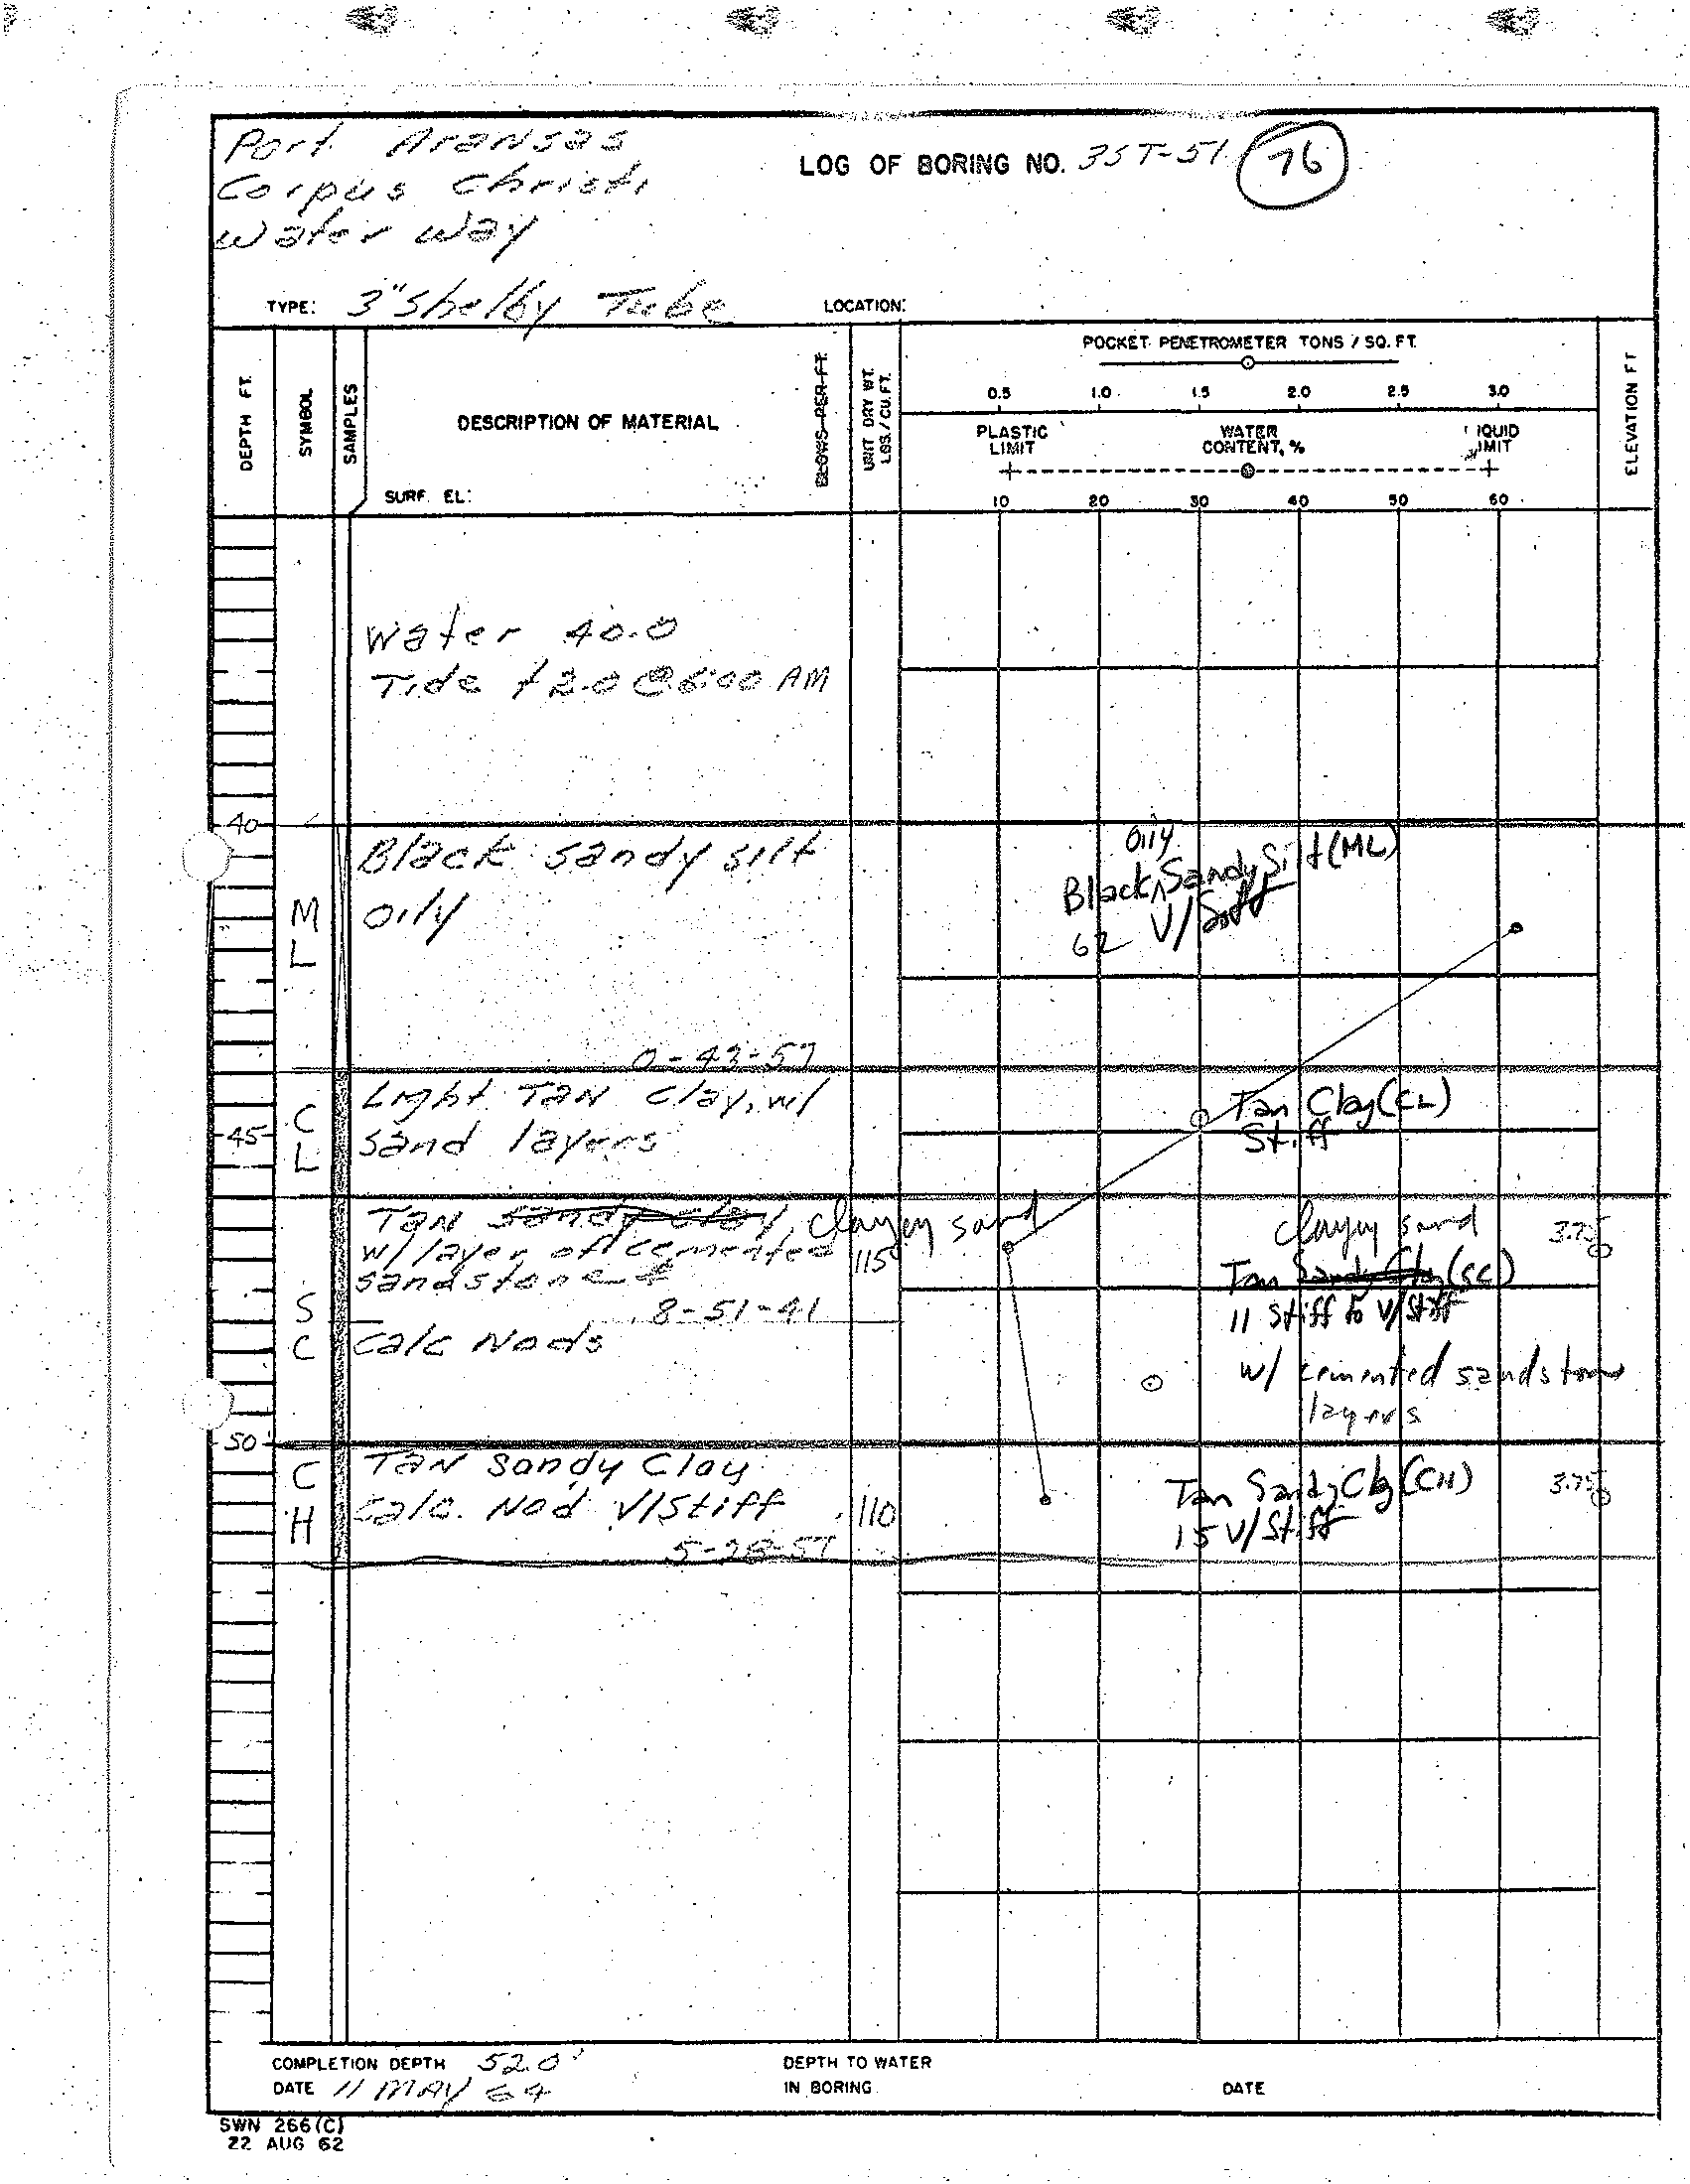 Port Aransas
Corpus Christi
Water Way
LOG OF BORING NO. 3ST-51 76
TYPE: 3" Shelby Tube
LOCATION:
DEPTH FT.
SYMBOL
SAMPLES
DESCRIPTION OF MATERIAL
SURF. EL:
BLOWS PER FT.
UNIT DRY WT. LBS./CU.FT.
POCKET PENETROMETER TONS / SQ. FT.
0.5 1.0 1.5 2.0 2.5 3.0
PLASTIC LIMIT
WATER CONTENT, %
LIQUID LIMIT
10 20 30 40 50 60
ELEVATION FT
Water 40.0
Tide +2.0 @ 6:00 AM
40
Black sandy silt
oily
ML
oily
Black Sandy Silt (ML)
V/Soft
62
0-43-57
Light Tan Clay, w/
sand layers
CL
45
Tan Clay (CL)
Stiff
Tan sandy clay, clayey sand
w/ layer of cemented
sandstone &
8-51-41
calc Nods
SC
115
clayey sand
Tan Sandy Clay (SC)
11 Stiff to V/Stiff
w/ cemented sandstone
layers
3.75
50
Tan Sandy Clay
Calc. Nod V/Stiff
5-28-57
CH
110
Tan Sandy Clay (CH)
15 V/Stiff
3.75
COMPLETION DEPTH 52.0'
DATE 11 MAY 64
DEPTH TO WATER
IN BORING
DATE
SWN 266(C)
22 AUG 62